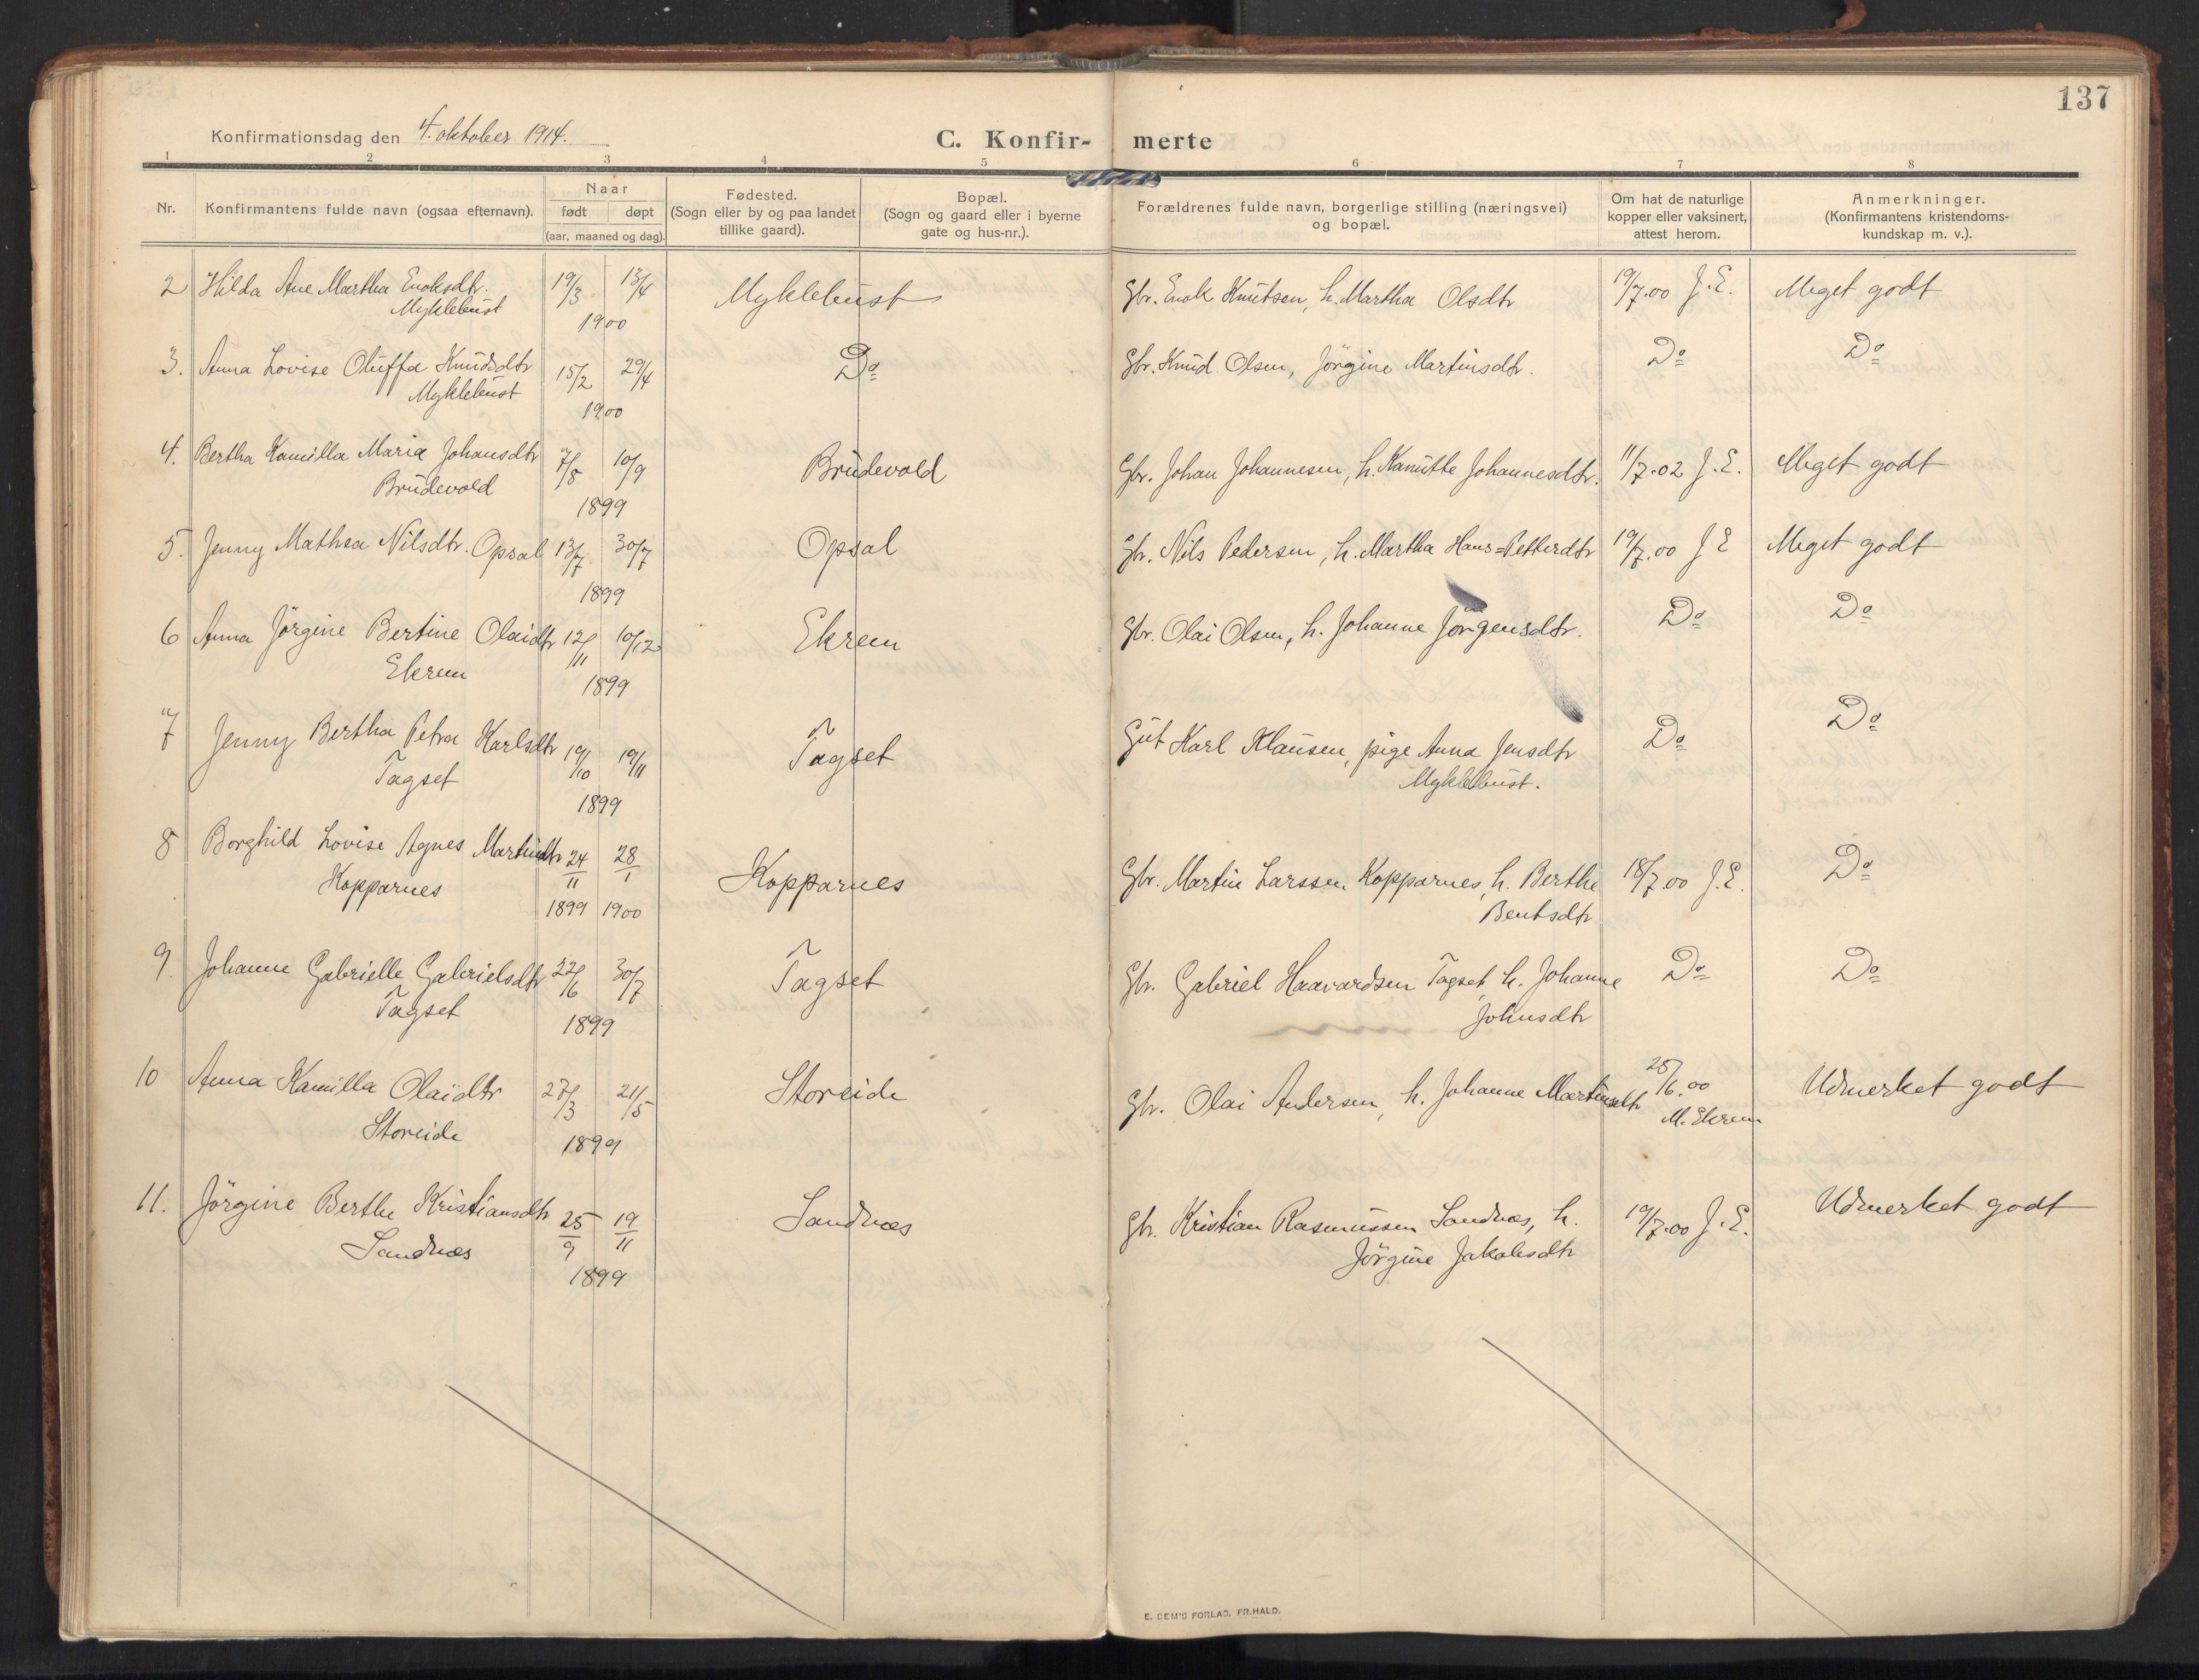 137
Konfirmationsdag den 4. oktober 1914.
C. Konfir- merte
1 2 3 4 5 6 7 8
Nr.
Konfirmantens fulde navn (ogsaa efternavn).
Naar
født døpt
(aar, maaned og dag).
Fødested.
(Sogn eller by og paa landet
tillike gaard).
Bopæl.
(Sogn og gaard eller i byerne
gate og hus-nr.).
Forældrenes fulde navn, borgerlige stilling (næringsvei)
og bopæl.
Om hat de naturlige
kopper eller vaksinert,
attest herom.
Anmerkninger.
(Konfirmantens kristendoms-
kundskap m. v.).
2 Hilda Ane Martha Enoksdtr. 19/3 13/4 Myklebust Gbr. Enok Knutsen, h. Martha Olsdtr 19/7.00 J.E. Meget godt
Myklebust
1900
3. Anna Lovise Oluffa Knudsdtr 15/2 29/4 Do Gbr. Knud Olsen, Jörgine Martinsdtr. Do Do
Myklebust
1900
4. Bertha Kamilla Maria Johansdtr 7/8 10/9 Brudevold Gbr. Johan Johannesen, h. Kanutte Johannesdtr. 11/7.02 J.E. Meget godt
Brudevold
1899
5. Jenny Mathea Nilsdtr. Opsal 13/7 30/7 Opsal Gbr. Nils Pedersen, h. Martha Hans=Petterdtr 19/7.00 J E Meget godt
1899
6 Anna Jörgine Bertine Olaidtr 12/11 10/12 Ekrem Gbr. Olai Olsen, h. Johanne Jörgensdtr. Do Do
Ekrem
1899
7 Jenny Bertha Petra Karlsdtr 19/10 19/11 Tagset Gut Karl Klausen, pige Anna Jensdtr Do Do
Tagset Myklebust.
1899
8 Borghild Lovise Agnes Martindtr 24/11 28/1 Kopparnes Gbr. Martin Larssen Kopparnes, h. Berthe 18/7.00 J.E. Do
Kopparnes Bentsdtr
1899 1900
9. Johanne Gabrielle Gabrielsdtr 22/6 30/7 Tagset Gbr. Gabriel Haavardsen Tagset, h. Johanne Do Do
Tagset Johnsdtr
1899
10 Anna Kamilla Olaidtr 27/3 21/5 Storeide Gbr. Olai Andersen, h. Johanne Martinsdtr 25/6.00 Udmerket godt
Storeide M. Ekrem
1899
11. Jörgine Berthe Kristiansdtr 25/9 19/11 Sandnæs Gbr. Kristian Rasmussen Sandnæs, h. 19/7.00 J.E. Udmerket godt
Sandnæs Jörgine Jakobsdtr
1899
E. SEM'S FORLAG. FR.HALD.